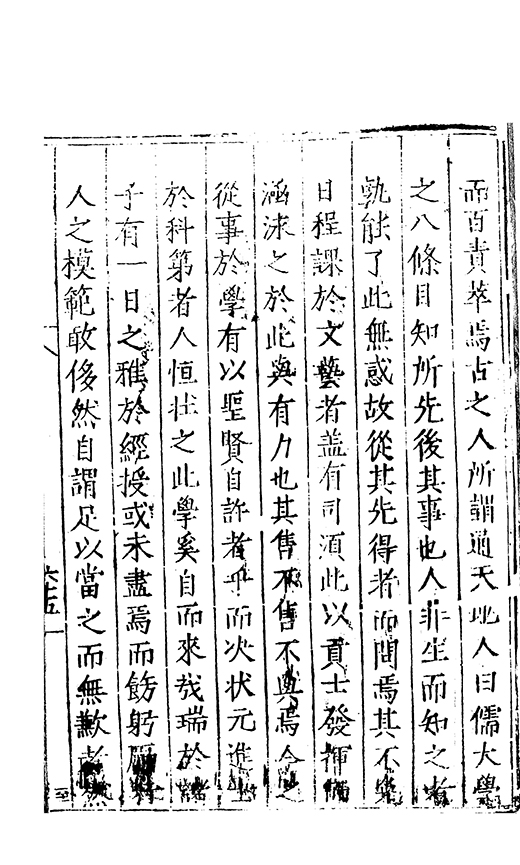 而百責萃焉古之人所謂通天地人曰儒大學
之八條目知所先後其事也人非生而知之者
孰能了此無惑故從其先得者而問焉其不
日程課於文藝者盖有司須此以貢士發揮
涵泳之於此與有力也其售不售不與焉今之
從事於學有以聖賢自許者乎而次状元進士
於科第者人恒壮之此學奚自而來哉瑞於諸
子有一日之雅於經授或未盡焉而飭躬
人之模範敢侈然自謂足以當之而無歉者
六十五